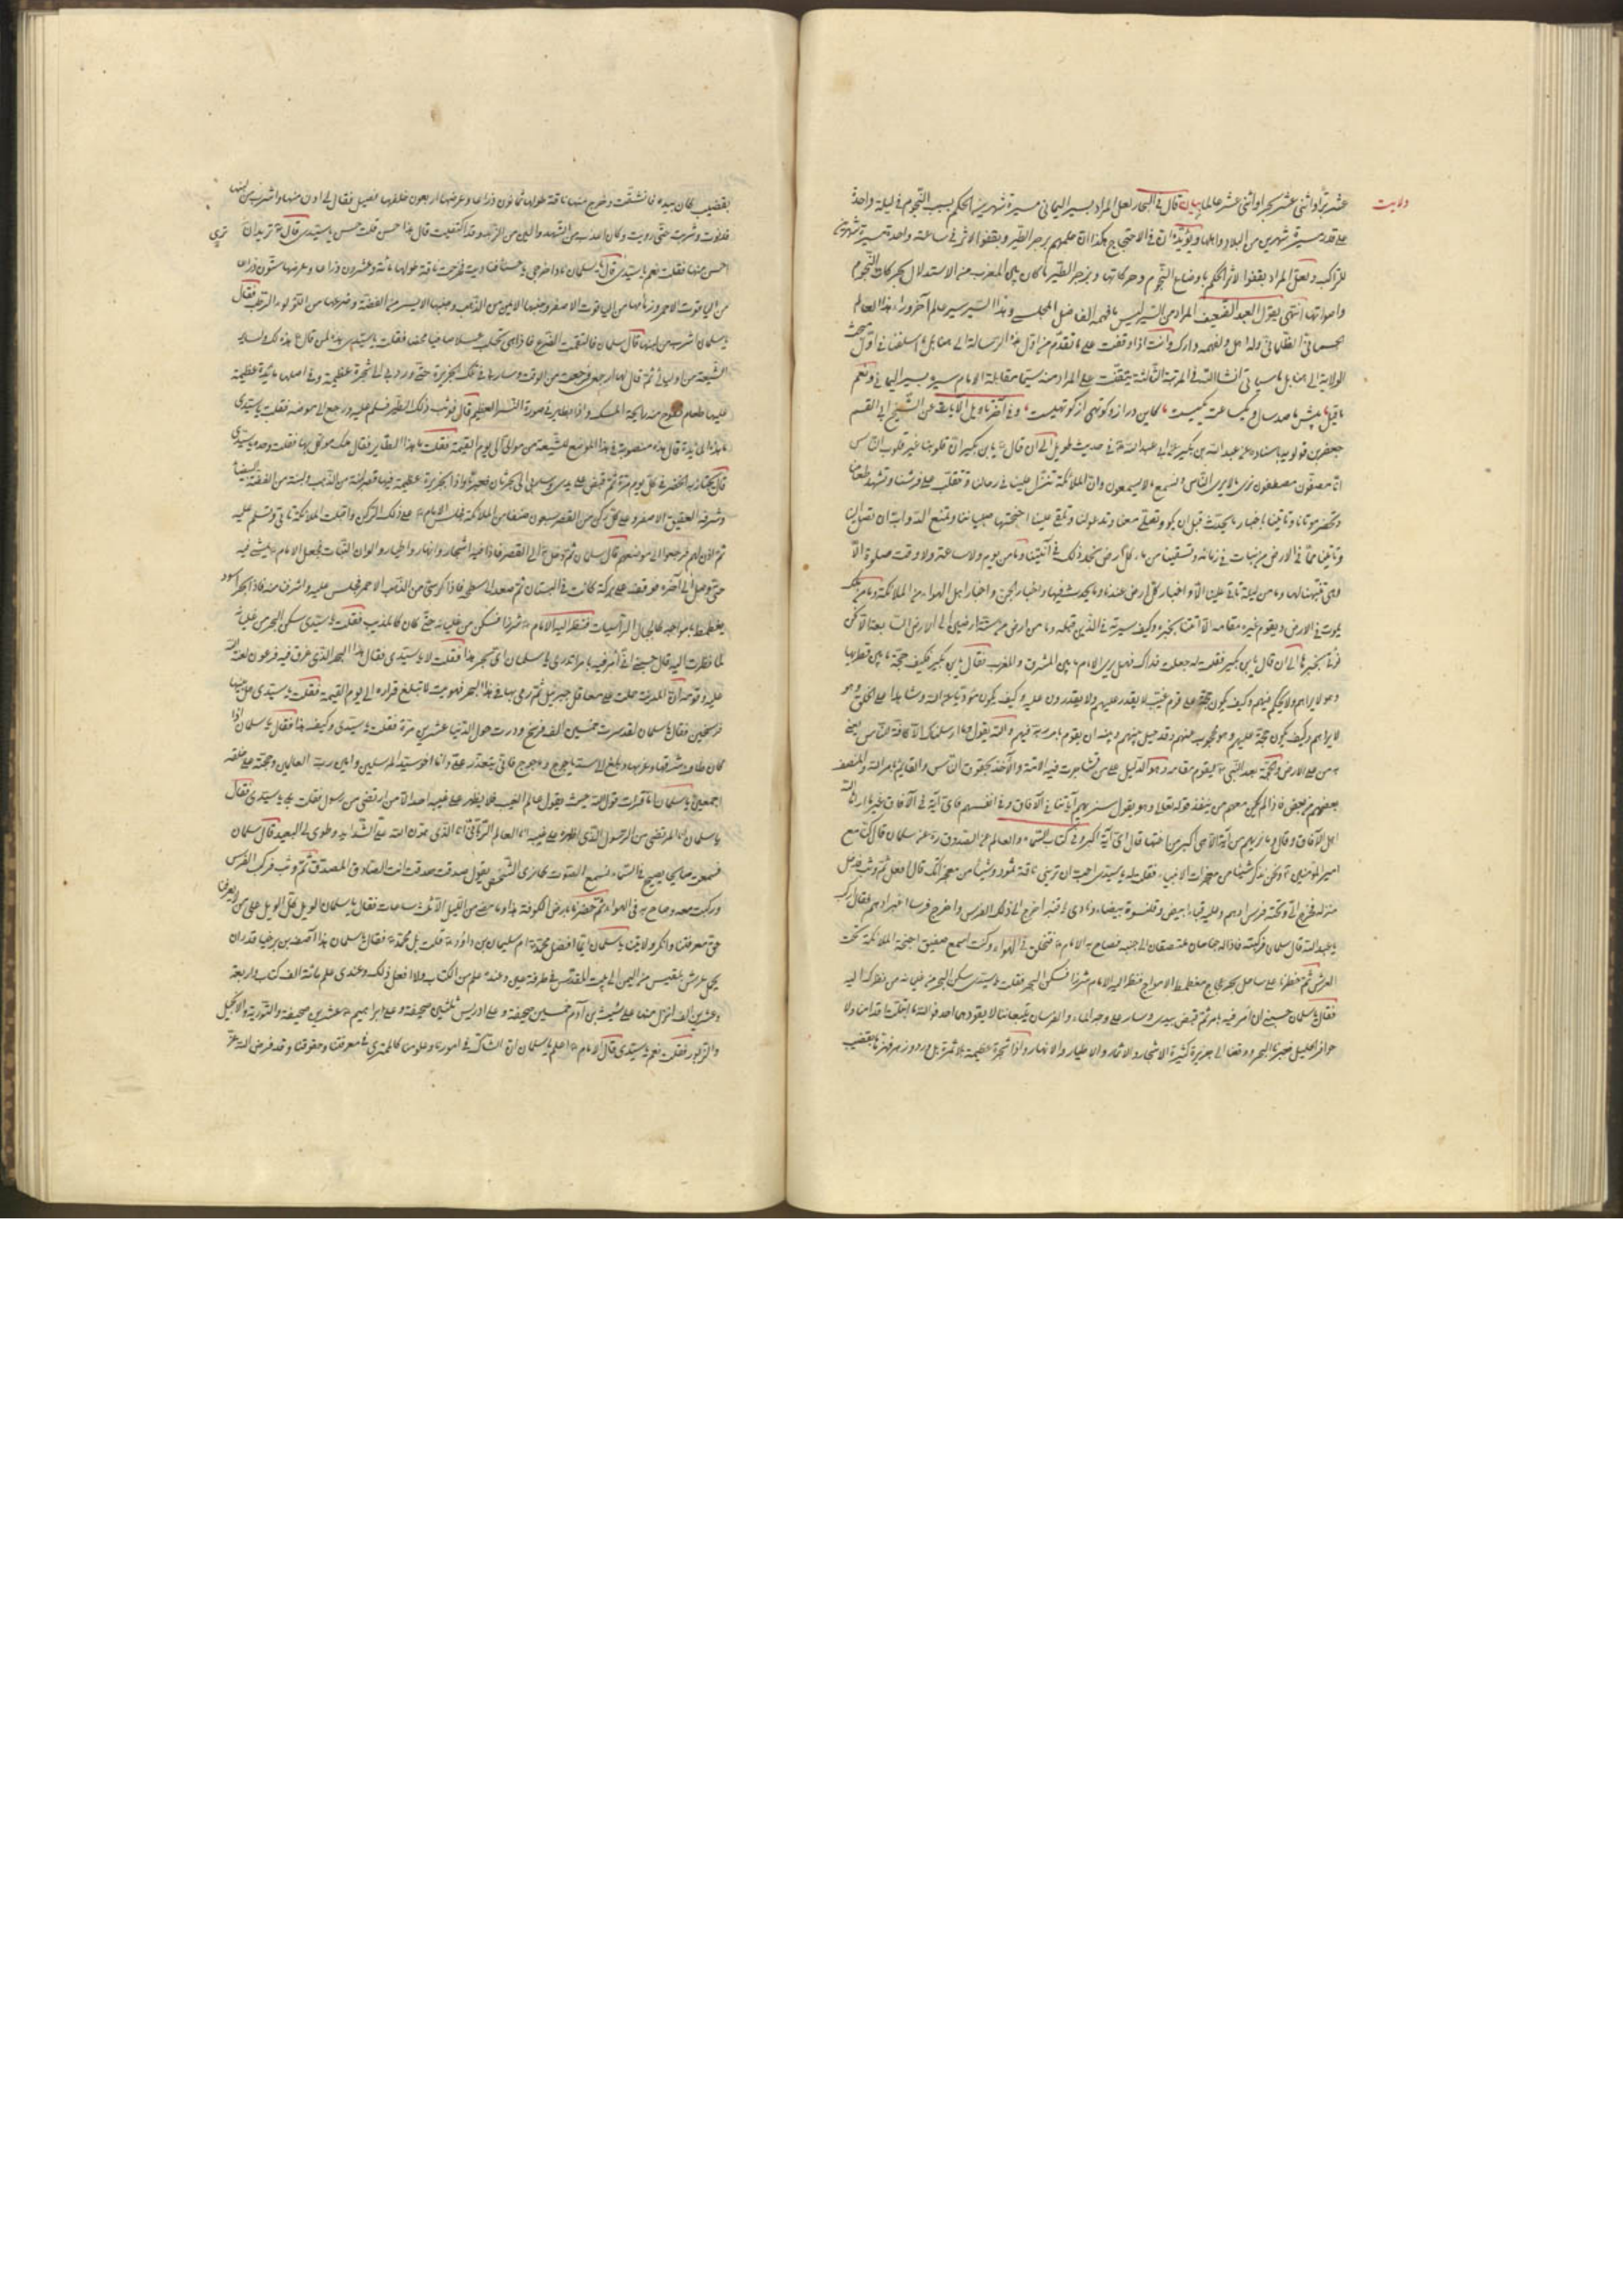 عشر برّاً واثنی عشر بحراً واثنی عشر عالما بیان قال فی البحار لعل المراد بسیر الیمانی مسیرة شهرین الحکم بسبب النجوم فی لیلة واحدة
علی قدر مسیرة شهرین من البلاد واهلها ویؤیّده انّ فی الاحتجاج هکذا انّ علمهم یزجر الطیر ویقفو الاثر فی ساعة واحدة مسیرة شهر
للراکب ولعلّ المراد بقفو الاثر الحکم باوضاع النجوم وحرکاتها وبزجر الطیر ما کان بین العرب من الاستدلال بحرکات الطیور
واصواتها انتهی یقول العبد الضعیف المراد من السیر لیس ما فهمه الفاضل المجلسی وهذا السیر سیر عالم آخر وراء هذا العالم
الجسمانی الظلمانی وله اهل ولفهمه دارک وانت اذا وقفت علی ما تقدّم من اوّل هذه الرسالة الی هنا بل ما اسلفنا فی اوّل مبحث
الولایة الی هنا بل ما سیاتی انشاء الله فی المرتبة الثالثة یتحقّق علی المراد منه سیّما مقابلة الامام سیره بسیر الیمانی ونعم
ما قیل
جعفر بن قولویه باسناده عن عبد الله بن بکیر عن ابی عبد الله فی حدیث طویل الی ان قال یا بن بکیر انّ قلوبنا غیر قلوب الناس
انّا مصفّون مصطفون نری ما لا یری الناس ونسمع ما لا یسمعون وانّ الملائکة تنزل علینا فی رحالنا وتقلّب علی فرشنا وتشهد طعامنا
وتحضر موتانا وتاتینا باخبار ما یحدث قبل ان یکون وتصلّی معنا وتدعو لنا وتلقی علینا اجنحتها وتتقلب علی صبیاننا وتمنع الدواب ان تصل الینا
وتاتینا ممّا فی الارض من نبات فی زمانه وتسقینا من ماء کلّ ارض نجد ذلک فی آنیتنا وما من یوم ولا ساعة ولا وقت صلوة الّا
وهی تنبّهنا لها وما من لیلة تاتی علینا الّا واخبار کلّ ارض عندنا وما یحدث فیها واخبار الجنّ واخبار اهل الهواء من الملائکة وما من ملک
یموت فی الارض ویقوم غیره مقامه الّا اتتنا بخبره وکیف سیرته فی الذین قبله وما من ارض من ستّة ارضین الی الارض السابعة الّا نحن
نؤتی بخبرها الی ان قال یا بن بکیر فقلت له جعلت فداک فهل یری الامام ما بین المشرق والمغرب فقال یا بن بکیر فکیف یکون حجّة ما بین قطریها
وهو لا یراهم ولا یحکم فیهم وکیف یکون حجّة علی قوم غیّب لا یقدر علیهم ولا یقدرون علیه وکیف یکون مؤدّیا عن الله وشاهدا علی الخلق وهو
لا یراهم وکیف یکون حجّة علیهم وهو محجوب عنهم وقد حیل بینهم وبینه ان یقوم بامر ربّه فیهم والله یقول وما ارسلناک الّا کافّة للناس یعنی
به من علی الارض والحجّة بعد النبی یقوم مقامه وهو الدلیل علی من تشاجرت فیه الامّة والآخذ بحقوق الناس والقائم بامر الله والمنصف
بعضهم من بعض فاذا لم یکن معهم من ینفذ قوله تعالی وهو یقول سنریهم آیاتنا فی الآفاق وفی انفسهم فای آیة فی الآفاق غیرنا اراها الله
اهل الآفاق وقال وما نریهم من آیة الّا هی اکبر من اختها فای آیة اکبر منّا وفی کتاب السماء والعالم عن الصدوق ره عن سلمان قال کنّا مع
امیر المؤمنین ونحن نذکر شیئا من معجزات الانبیاء فقلت له یا سیّدی احبّ ان ترینی ناقة ثمود وشیئا من معجزاتک قال افعل ثم وثب فدخل
منزله فخرج الیّ وتحته فرس ادهم وعلیه قباء ابیض وقلنسوة بیضاء ونادی یا قنبر اخرج الیّ ذلک الفرس فاخرج فرسا اغرّ ادهم فقال ارکب
یا عبد الله قال سلمان فرکبته فاذا له جناحان ملتصقان الی جنبه فصاح به الامام فتحلّق فی الهواء وکنت اسمع حفیف اجنحة الملائکة تحت
العرش ثم خطرنا علی ساحل بحر عجاج مغطمط الامواج فنظر الیه الامام شزرا فسکن البحر فقلت یا سیّدی سکن البحر من غلیانه من نظرک الیه
فقال یا سلمان حسبنی ان آمر فیه بامر ثم قبض بیدی وسار علی وجه الماء والفرسان یتبعاننا لا یقودهما احد فوالله ما ابتلّت اقدامنا ولا
حوافر الخیل فعبرنا البحر ووقعنا الی جزیرة کثیرة الاشجار والاثمار والاطیار والانهار واذا شجرة عظیمة بلا ثمرة بل ورد وزهر فهزّها بقضیب
ولایت
بقضیب کان بیده فانشقّت وخرج منها ناقة طولها ثمانون ذراعا وعرضها اربعون خلفها فصیل فقال لی ادن منها واشرب من لبنها
فدنوت وشربت حتی رویت وکان اعذب من الشهد والین من الزبد وقد اکتفیت قال هذا حسن قلت حسن یا سیّدی قال ترید ان تری
احسن منها فقلت نعم یا سیّدی قال یا سلمان ناد اخرجی یا حسناء فنادیت فخرجت ناقة طولها مائة وعشرون ذراعا وعرضها ستون ذراعا
من الیاقوت الاحمر وزمامها من الیاقوت الاصفر وجنبها الایمن من الذهب وجنبها الایسر من الفضّة وضرعها من اللؤلؤ الرطب فقال
یا سلمان اشرب من لبنها قال سلمان فالتقمت الضرع فاذا هی تحلب عسلا صافیا محضا فقلت یا سیّدی هذه لمن قال هذه لک ولسایر
الشیعة من اولیائی ثم قال لها ارجعی فرجعت من الوقت وسار بی فی تلک الجزیرة حتی ورد بی الی شجرة عظیمة وفی اصلها مائدة عظیمة
علیها طعام یفوح منه رائحة المسک واذا بطایر فی صورة النسر العظیم قال فوثب ذلک الطیر فسلم علیه ورجع الی موضعه فقلت یا سیّدی
ما هذه المائدة قال هذه منصوبة فی هذا الموضع للشیعة من موالیّ الی یوم القیمة فقلت ما هذا الطایر فقال ملک موکّل بها فقلت وحده یا سیّدی
قال یجتاز به الخضر فی کلّ یوم مرّة ثم قبض علی یدی وسار بی الی بحر ثان فعبرنا واذا بجزیرة عظیمة فیها قصر لبنة من الذهب ولبنة من الفضّة البیضاء
وشرفه العقیق الاصفر وعلی کلّ رکن من القصر سبعون صنفا من الملائکة فجلس الامام علی ذلک الرکن واقبلت الملائکة تاتی وتسلّم علیه
ثم اذن لهم فرجعوا الی مواضعهم قال سلمان ثم دخل الی القصر فاذا فیه اشجار وانهار واطیار والوان النبات فجعل الامام یمشی فیه
حتی وصل الی آخره فوقف علی برکة کانت فی البستان ثم صعد الی سطحه فاذا کرسی من الذهب الاحمر فجلس علیه واشرفنا منه فاذا بحر اسود
یغطمط بامواجه کالجبال الراسیات فنظر الیه الامام شزرا فسکن من غلیانه حتی کان کالمذنب فقلت یا سیّدی سکن البحر من غلیانه
لمّا نظرت الیه قال حسبنی انّی آمر فیه بامر اتدری یا سلمان ای بحر هذا فقلت لا یا سیّدی فقال هذا البحر الذی غرق فیه فرعون لعنه الله
علیه وقومه انّ المدینة حملت علی معاقل جبرئیل ثم رمی بها فی هذا البحر فهویت لا تبلغ قراره الی یوم القیمة فقلت یا سیّدی هل سرنا
فرسخین فقال یا سلمان لقد سرت خمسین الف فرسخ ودرت حول الدنیا عشرین مرّة فقلت یا سیّدی وکیف هذا فقال یا سلمان اذا
کان طاف شرقها وغربها وبلغ الی سدّ یاجوج وماجوج فانّی یتعذّر علیّ وانا اخو سیّد المرسلین وامین ربّ العالمین وحجّته علی خلقه
اجمعین یا سلمان اما قرات قول الله حیث یقول عالم الغیب فلا یظهر علی غیبه احدا الّا من ارتضی من رسول فقلت بلی یا سیّدی فقال
یا سلمان انا المرتضی من الرسول الذی اظهره علی غیبه انا العالم الربّانی انا الذی هوّن الله علیّ الشداید وطوی لی البعید قال سلمان
فسمعت صائحا یصیح فی السماء اسمع الصوت ولا اری الشخص یقول صدقت صدقت انت الصادق المصدّق ثم وثب فرکب الفرس
ورکبت معه وصاح به فی الهواء ثم حضرنا بارض الکوفة هذا وما مضی من اللیل ثلث ساعات فقال یا سلمان الویل کلّ الویل علی من لا یعرفنا
حقّ معرفتنا وانکر ولایتنا یا سلمان ایّما افضل محمّد ام سلیمان بن داود قلت بل محمّد فقال یا سلمان هذا آصف بن برخیا قدر ان
یحمل عرش بلقیس من الیمن الی بیت المقدس فی طرفة عین وعنده علم من الکتاب ولا افعل ذلک وعندی علم مائة الف کتاب واربعة
وعشرین الف انزل منها علی شیث بن آدم خمسین صحیفة وعلی ادریس ثلثین صحیفة وعلی ابراهیم عشرین صحیفة والتوریة والانجیل
والزبور فقلت نعم یا سیّدی قال الامام اعلم یا سلمان انّ الشاکّ فی امورنا وعلومنا کالممتری فی معرفتنا وحقوقنا وقد فرض الله عزّ